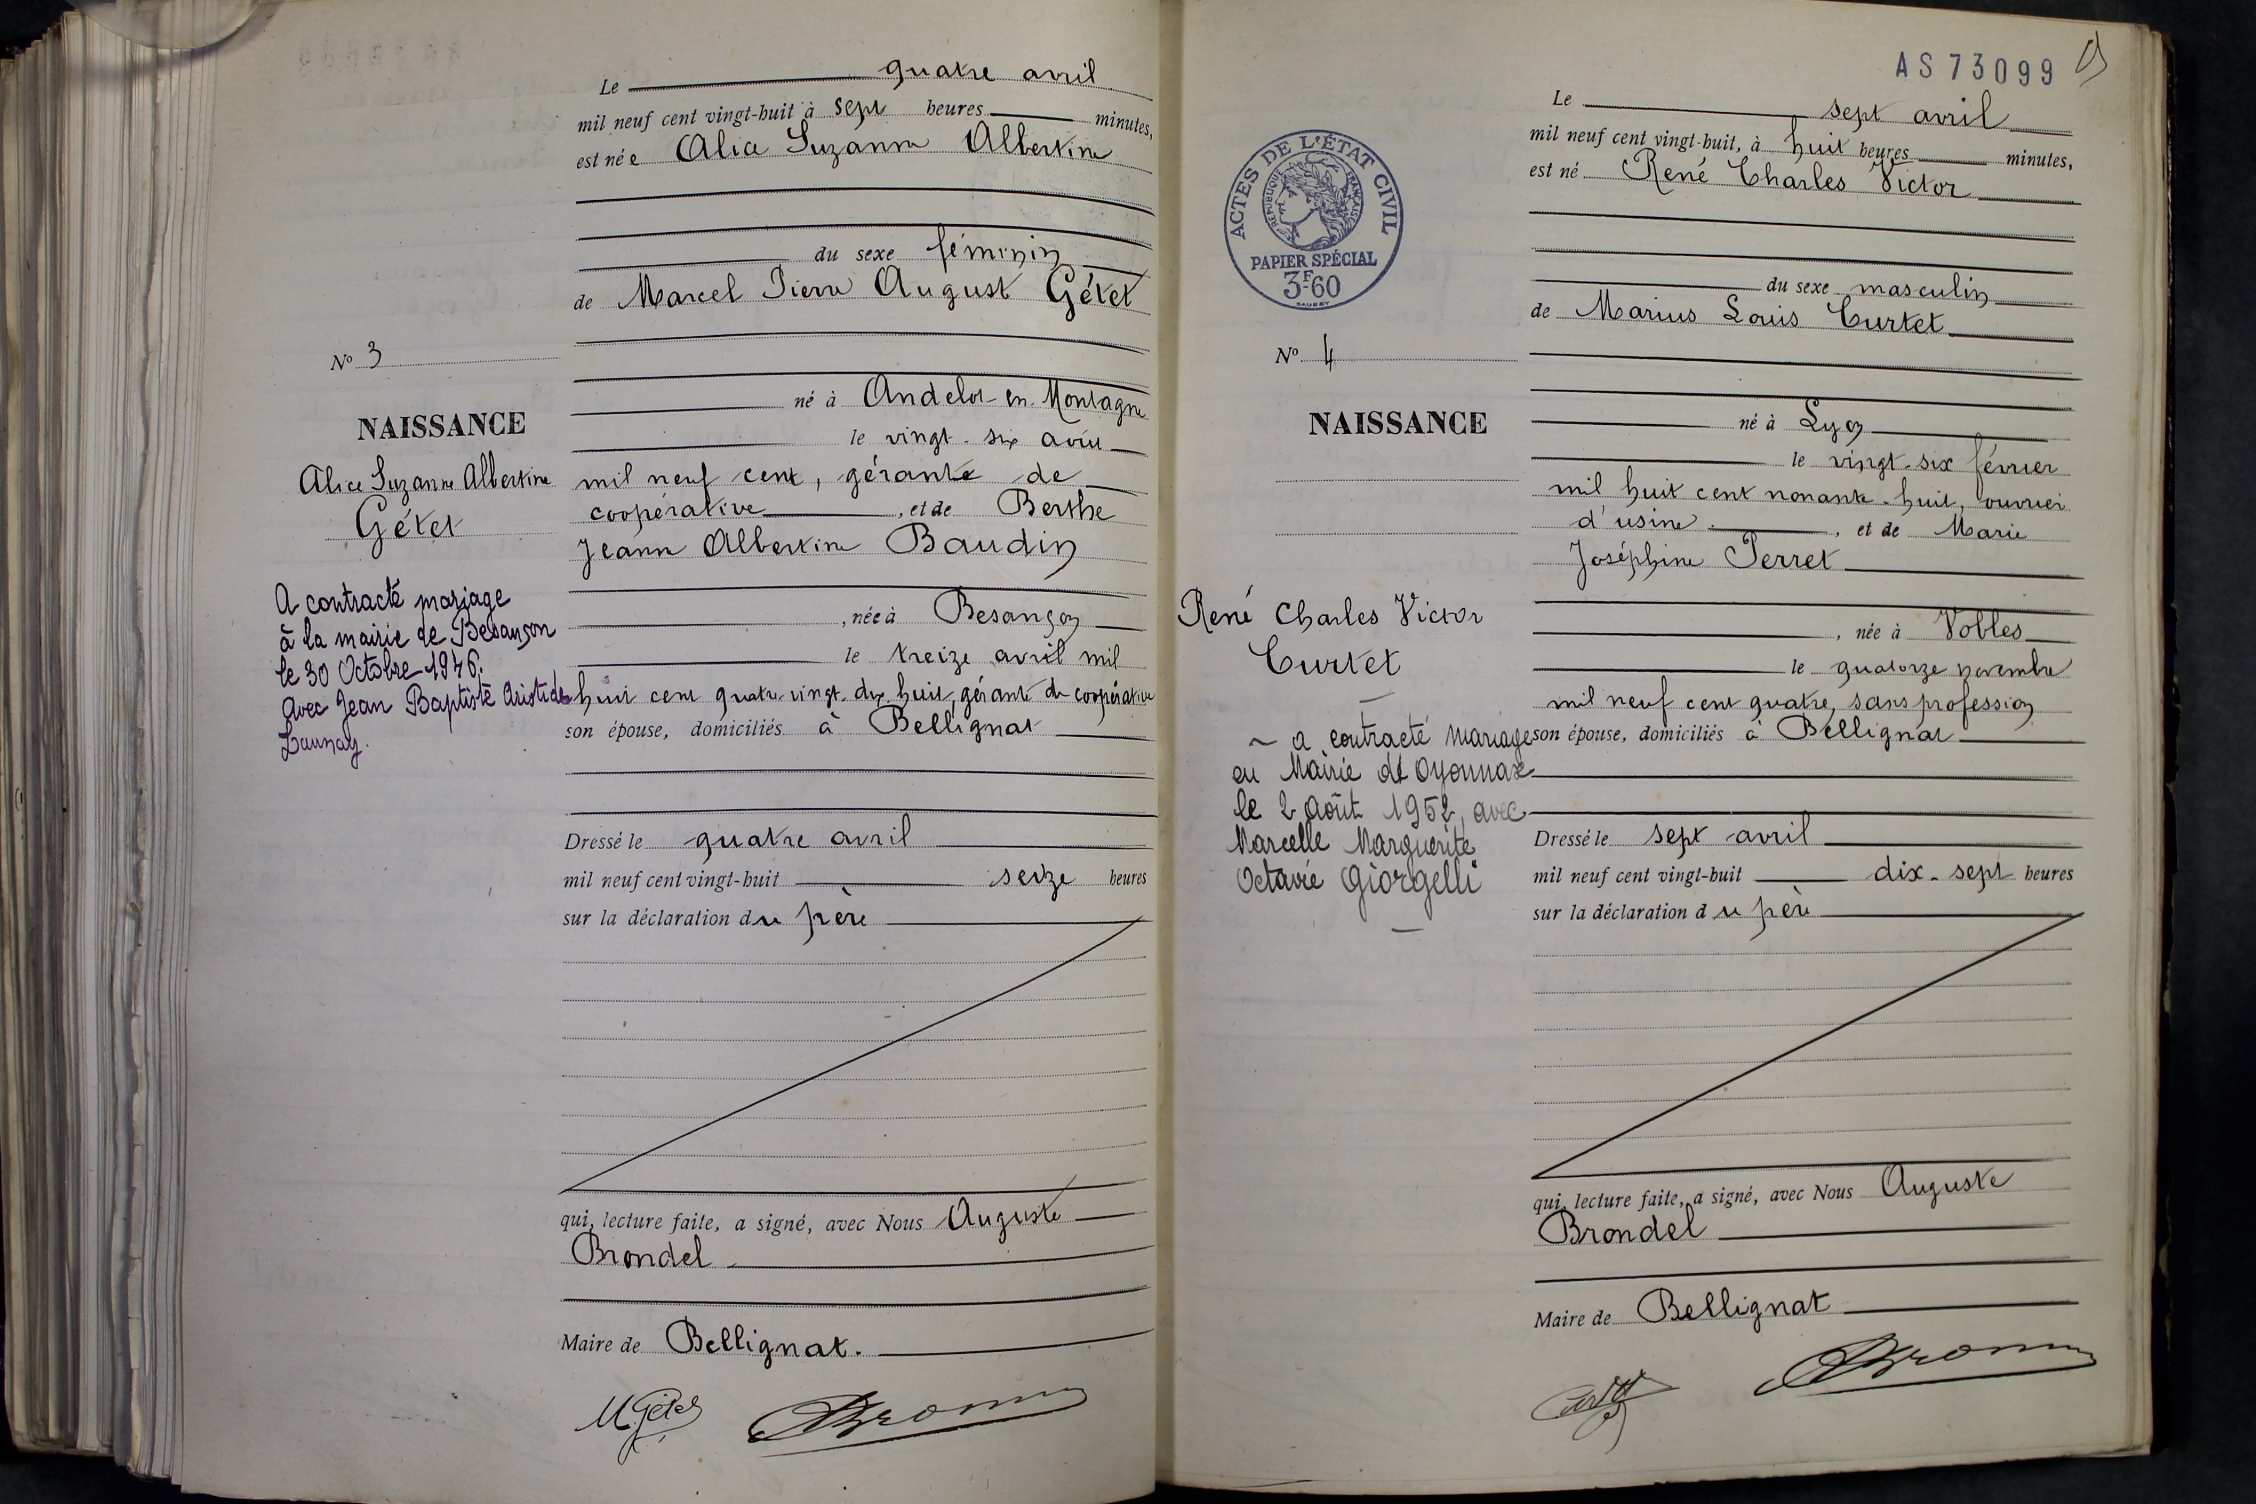 Le quatre avril
mil neuf cent vingt-huit à sept heures minutes,
est née Alice Suzanne Albertine
du sexe féminin
de Marcel Pierre August Gétet
né à Andelot-en-Montagne
le vingt-six avril
mil neuf cent, gérante de
coopérative, et de Berthe
Jeanne Albertine Baudin
, née à Besançon
le treize avril mil
huit cent quatre-vingt-dix-huit, gérante de coopérative
son épouse, domiciliés à Bellignat
Dressé le quatre avril
mil neuf cent vingt-huit seize heures
sur la déclaration du père
qui, lecture faite, a signé, avec Nous Auguste
Brondel
Maire de Bellignat.
M Gétet
No 3
NAISSANCE
Alice Suzanne Albertine
Gétet
A contracté mariage
à la mairie de Besançon
le 30 Octobre 1946.
avec Jean Baptiste Aristide
Launay.
AS 73099
ACTES DE L'ÉTAT CIVIL
RÉPUBLIQUE FRANÇAISE
PAPIER SPÉCIAL
3F60
Le sept avril
mil neuf cent vingt-huit, à huit heures minutes,
est né René Charles Victor
du sexe masculin
de Marius Louis Curtet
né à Lyon
le vingt-six février
mil huit cent nonante-huit, ouvrier
d'usine, et de Marie
Joséphine Perret
, née à Vobles
le quatorze novembre
mil neuf cent quatre, sans profession
son épouse, domiciliés à Bellignat
Dressé le sept avril
mil neuf cent vingt-huit dix-sept heures
sur la déclaration du père
qui, lecture faite, a signé, avec Nous Auguste
Brondel
Maire de Bellignat
No 4
NAISSANCE
René Charles Victor
Curtet
a contracté mariage
en Mairie de Oyonnax
le 2 Août 1952, avec
Marcelle Marguerite
Octavie Giorgelli